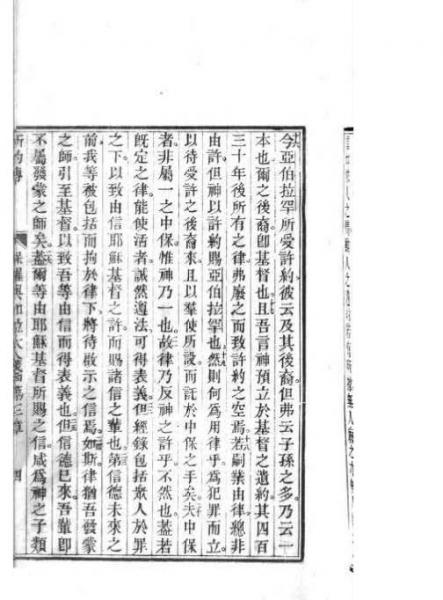 今亞伯拉罕所受許約彼云及其後裔但弗云子孫之多乃云一
本也爾之後裔卽基督也且吾言神預立於基督之遺約其四百
三十年後所有之律弗廢之而致許約之空焉若嗣業由律總非
由許但神以許約賜亞伯拉罕也然則何爲用律乎爲犯罪而立
以待受許之後裔來且以羣使所設而託於中保之手矣夫中保
者非屬一之中保惟神乃一也故律乃反神之許乎不然也蓋若
旣定之律能使活者誠然遵法可得表義但經錄包括衆人於罪
之下以致由信耶穌基督之許而賜諸信之輩也第信德未來之
前我等被包括而拘於律下將待啟示之信焉如斯律猶吾發蒙
之師引至基督以致吾等由信而得表義也但信德已來吾輩卽
不屬發蒙之師矣蓋爾等由耶穌基督所賜之信咸爲神之子類